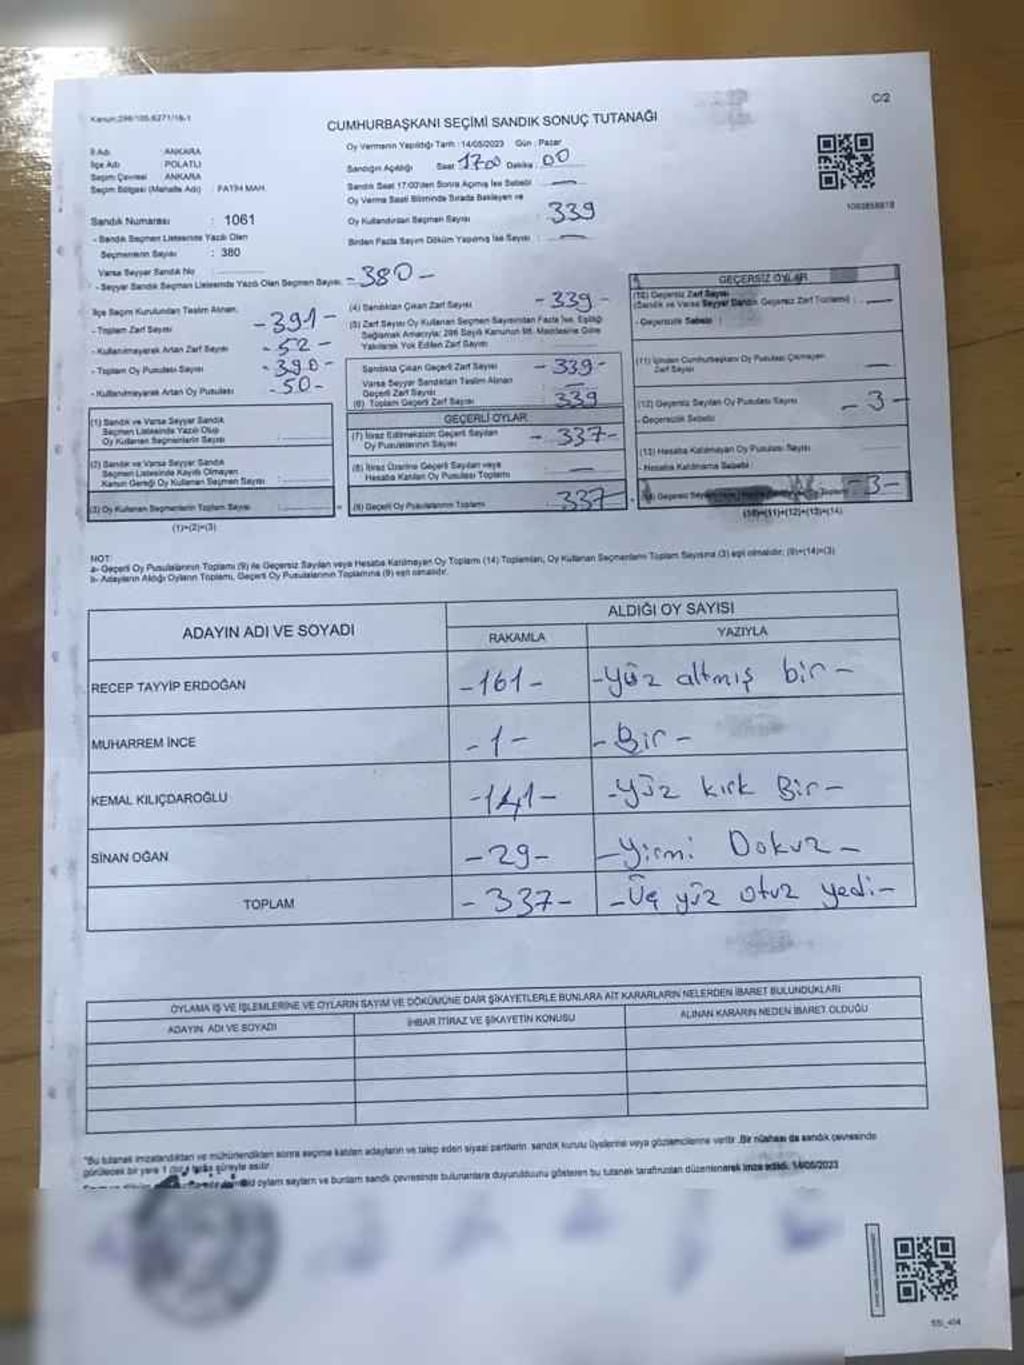 C/2
Kanun:298/105,6271/16-1
CUMHURBAŞKANI SEÇİMİ SANDIK SONUÇ TUTANAĞI
Oy Vermenin Yapıldığı Tarih : 14/05/2023 Gün : Pazar
İl Adı ANKARA
İlçe Adı POLATLI
Seçim Çevresi ANKARA
Seçim Bölgesi (Mahalle Adı) : FATİH MAH.
Sandık Numarası : 1061
- Sandık Seçmen Listesinde Yazılı Olan
Seçmenlerin Sayısı : 380
Varsa Seyyar Sandık No :
- Seyyar Sandık Seçmen Listesinde Yazılı Olan Seçmen Sayısı - 380 -
Sandığın Açıldığı Saat 1700 Dakika : 00
Sandık Saat 17:00'den Sonra Açılmış İse Sebebi —
Oy Verme Saati Bitiminde Sırada Bekleyen ve
Oy Kullandırılan Seçmen Sayısı : 339
Birden Fazla Sayım Döküm Yapılmış İse Sayısı : —
İlçe Seçim Kurulundan Teslim Alınan,
- Toplam Zarf Sayısı - 391 -
- Kullanılmayarak Artan Zarf Sayısı - 52 -
- Toplam Oy Pusulası Sayısı - 390 -
- Kullanılmayarak Artan Oy Pusulası - 50 -
(1) Sandık ve Varsa Seyyar Sandık
Seçmen Listesinde Yazılı Olup
Oy Kullanan Seçmenlerin Sayısı :
(2) Sandık ve Varsa Seyyar Sandık
Seçmen Listesinde Kayıtlı Olmayan
Kanun Gereği Oy Kullanan Seçmen Sayısı :
(3) Oy Kullanan Seçmenlerin Toplam Sayısı :
(1)+(2)=(3)
(4) Sandıktan Çıkan Zarf Sayısı - 339 -
(5) Zarf Sayısı Oy Kullanan Seçmen Sayısından Fazla İse, Eşitliği
Sağlamak Amacıyla; 298 Sayılı Kanunun 98. Maddesine Göre
Yakılarak Yok Edilen Zarf Sayısı
Sandıkta Çıkan Geçerli Zarf Sayısı - 339 -
Varsa Seyyar Sandıktan Teslim Alınan
Geçerli Zarf Sayısı : —
(6) Toplam Geçerli Zarf Sayısı 339
GEÇERLİ OYLAR
(7) İtiraz Edilmeksizin Geçerli Sayılan
Oy Pusulalarının Sayısı - 337 -
(8) İtiraz Üzerine Geçerli Sayılan veya
Hesaba Katılan Oy Pusulası Toplamı : —
(9) Geçerli Oy Pusulalarının Toplamı : 337
GEÇERSİZ OYLAR
(10) Geçersiz Zarf Sayısı
(Sandık ve Varsa Seyyar Sandık Geçersiz Zarf Toplamı) : —
- Geçersizlik Sebebi :
(11) İçinden Cumhurbaşkanı Oy Pusulası Çıkmayan
Zarf Sayısı —
(12) Geçersiz Sayılan Oy Pusulası Sayısı - 3 -
- Geçersizlik Sebebi :
(13) Hesaba Katılmayan Oy Pusulası Sayısı
- Hesaba Katılmama Sebebi : —
Toplamı - 3 -
(10)+(11)+(12)+(13)=(14)
NOT:
a- Geçerli Oy Pusulalarının Toplamı (9) ile Geçersiz Sayılan veya Hesaba Katılmayan Oy Toplamı (14) Toplamları, Oy Kullanan Seçmenlerin Toplam Sayısına (3) eşit olmalıdır; (9)+(14)=(3)
b- Adayların Aldığı Oyların Toplamı, Geçerli Oy Pusulalarının Toplamına (9) eşit olmalıdır.
ADAYIN ADI VE SOYADI ALDIĞI OY SAYISI
RAKAMLA YAZIYLA
RECEP TAYYİP ERDOĞAN - 161 - - yüz altmış bir -
MUHARREM İNCE - 1 - - Bir -
KEMAL KILIÇDAROĞLU - 141 - - yüz kırk Bir -
SİNAN OĞAN - 29 - - yirmi Dokuz -
TOPLAM - 337 - - Üç yüz otuz yedi -
OYLAMA İŞ VE İŞLEMLERİNE VE OYLARIN SAYIM VE DÖKÜMÜNE DAİR ŞİKAYETLERLE BUNLARA AİT KARARLARIN NELERDEN İBARET BULUNDUKLARI
ADAYIN ADI VE SOYADI İHBAR İTİRAZ VE ŞİKAYETİN KONUSU ALINAN KARARIN NEDEN İBARET OLDUĞU
"Bu tutanak imzalandıktan ve mühürlendikten sonra seçime katılan adayların ve talep eden siyasi partilerin, sandık kurulu üyelerine veya gözlemcilerine verilir. Bir nüshası da sandık çevresinde
görülecek bir yere 1 hafta süreyle asılır.
oyların sayılarını ve bunların sandık çevresinde bulunanlara duyurulduğunu gösteren bu tutanak tarafımızdan düzenlenerek imza edildi. 14/05/2023